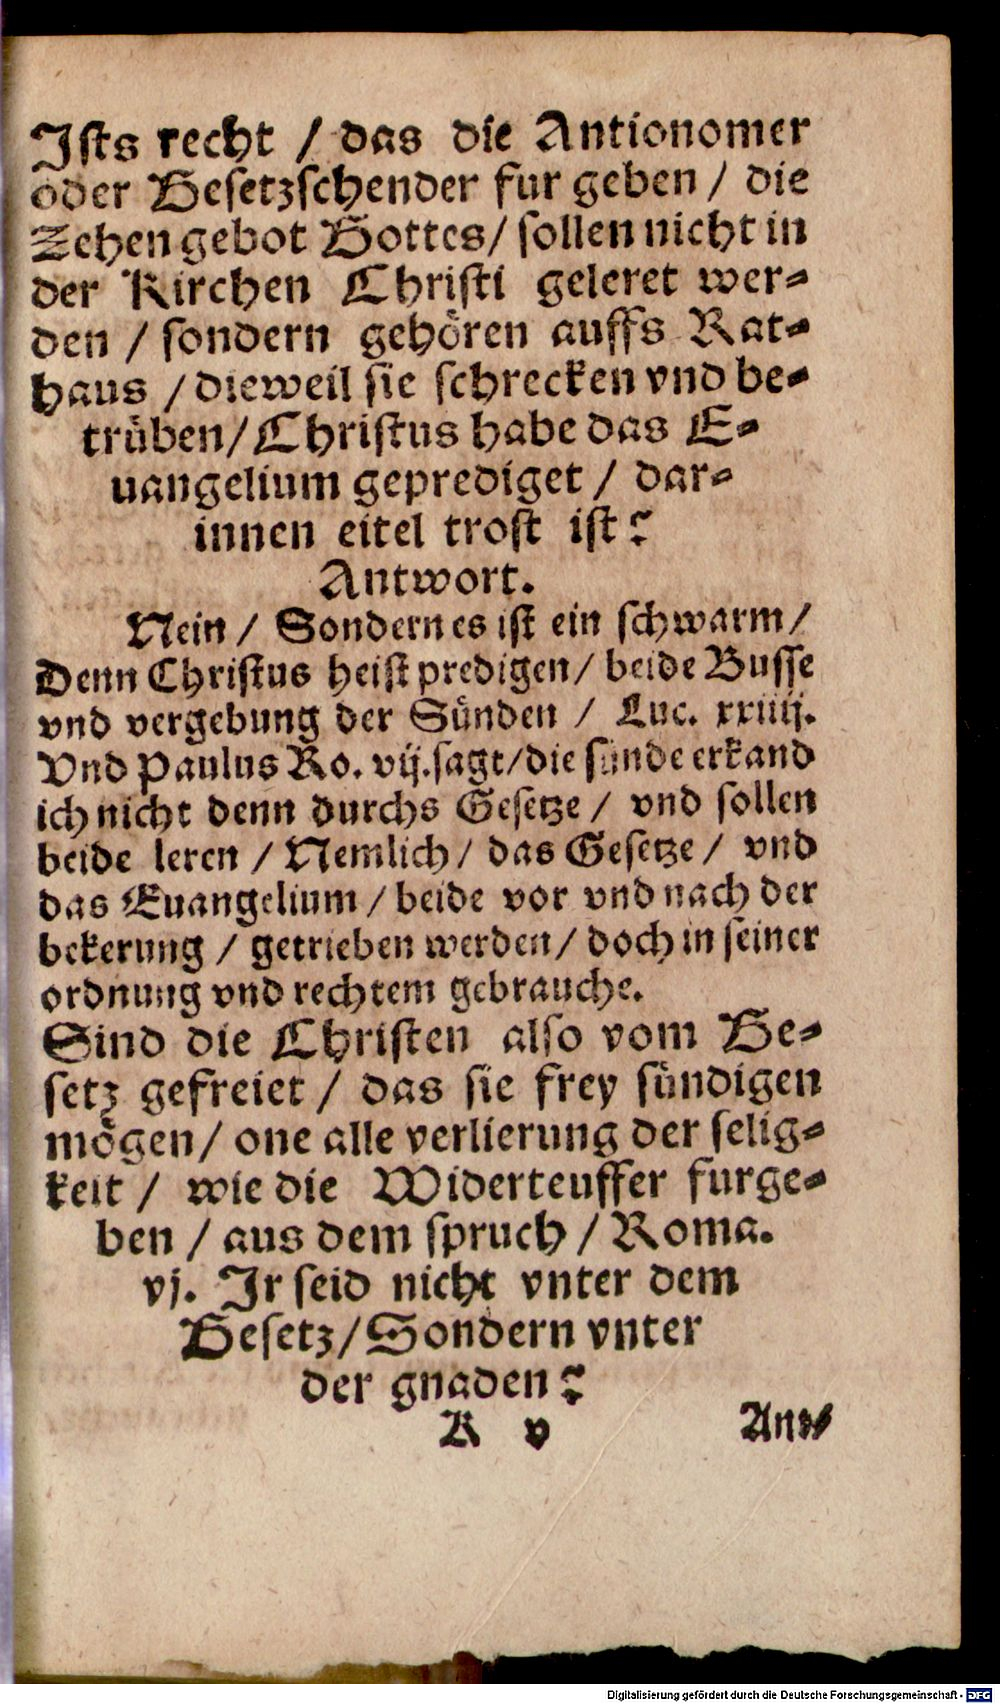 Ists recht / das die Antionomer
oder Gesetzschender fur geben / die
Zehen gebot Gottes / sollen nicht in
der Kirchen Christi geleret wer⸗
den / sondern gehören auffs Rat⸗
haus / dieweil sie schrecken vnd be⸗
trüben / Christus habe das E⸗
uangelium geprediget / dar⸗
innen eitel trost ist?
Antwort.
Nein / Sondern es ist ein schwarm /
Denn Christus heist predigen / beide Busse
vnd vergebung der Sünden / Luc. xxiiij.
Vnd Paulus Ro. vij. sagt / die sünde erkand
ich nicht denn durchs Gesetze / vnd sollen
beide leren / Nemlich / das Gesetze / vnd
das Euangelium / beide vor vnd nach der
bekerung / getrieben werden / doch in seiner
ordnung vnd rechtem gebrauche.
Sind die Christen also vom Ge⸗
setz gefreiet / das sie frey sündigen
mögen / one alle verlierung der selig⸗
keit / wie die Widerteuffer furge⸗
ben / aus dem spruch / Roma.
vj. Ir seid nicht vnter dem
Gesetz / Sondern vnter
der gnaden?
K v Ant⸗
Digitalisierung gefördert durch die Deutsche Forschungsgemeinschaft - DFG